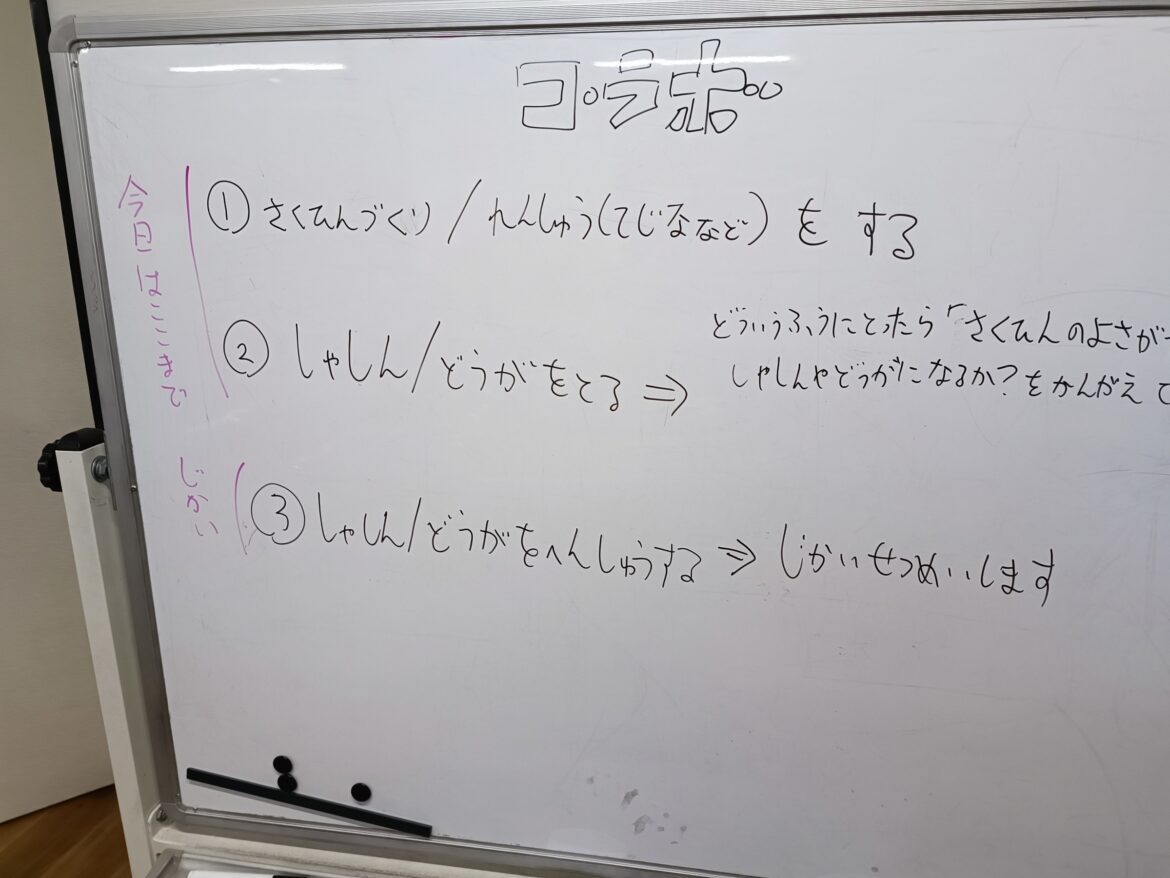 コ・ラボ
①さくひんづくり/れんしゅう(てじななど)をする
今日はここまで
②しゃしん/どうがをとる⇒
どういうふうにとったら「さくひんのよさが
しゃしんやどうがになるか?をかんがえて
じかい
③しゃしん/どうがをへんしゅうする⇒じかいせつめいします